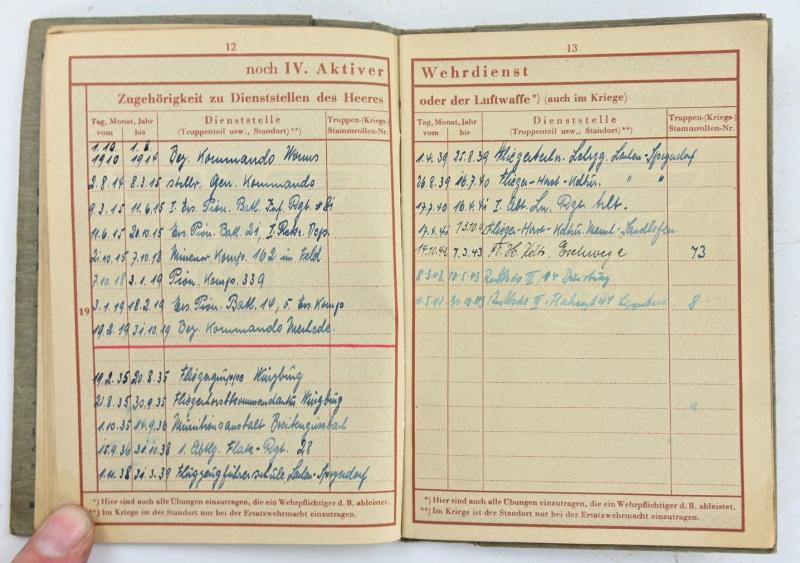 12
noch IV. Aktiver
Zugehörigkeit zu Dienststellen des Heeres
Tag, Monat, Jahr
vom bis
Dienststelle
(Truppenteil usw., Standort)**)
Truppen-(Kriegs-)
Stammrollen-Nr.
19
1.10. 1910 1914 Bez. Kommando Worms
2.8.14 8.3.15 stellv. Gen. Kommando
9.3.15 11.6.15 I. Ers. Pion. Batl. Inf. Rgt.
11.6.15 20.10.15 Ers. Pion. Batl. 21, I. Rekr. Dep.
21.10.15 7.10.18 Minenw. Komp. 162 im Feld
7.10.18 3.1.19 Pion. Komp. 339
3.1.19 18.2.19 Ers. Pion. Batl. 14, 5. Ers. Komp
19.2.19 31.10.19 Bez. Kommando
19.2.35 20.8.35 Fliegergruppe Würzburg
21.8.35 30.9.35 Fliegerhorstkommandantur Würzburg
1.10.35 14.9.36 Munitionsanstalt Breitengüssbach
15.9.36 31.10.38 1. Abtlg. Flak-Rgt. 28
1.11.38 31.3.39 Flugzeugführerschule
*) Hier sind auch alle Übungen einzutragen, die ein Wehrpflichtiger d. B. ableistet.
**) Im Kriege ist der Standort nur bei der Ersatzwehrmacht einzutragen.
13
Wehrdienst
oder der Luftwaffe*) (auch im Kriege)
Tag, Monat, Jahr
vom bis
Dienststelle
(Truppenteil usw., Standort)**)
Truppen-(Kriegs-)
Stammrollen-Nr.
1.4.39 25.8.39
26.8.39 16.7.40 Flieger-Horst-Kdtur. " "
17.7.40 16.4.41 I. Abt. Ln. Rgt.
17.4.41 13.10.42 Flieger-Horst-Kdtur. Mannh.-Sandhofen
14.10.42 7.3.43 Fl. H. Kdtr. Eschwege 73
8.3.43 10.5.43
11.5.43 8
*) Hier sind auch alle Übungen einzutragen, die ein Wehrpflichtiger d. B. ableistet.
**) Im Kriege ist der Standort nur bei der Ersatzwehrmacht einzutragen.